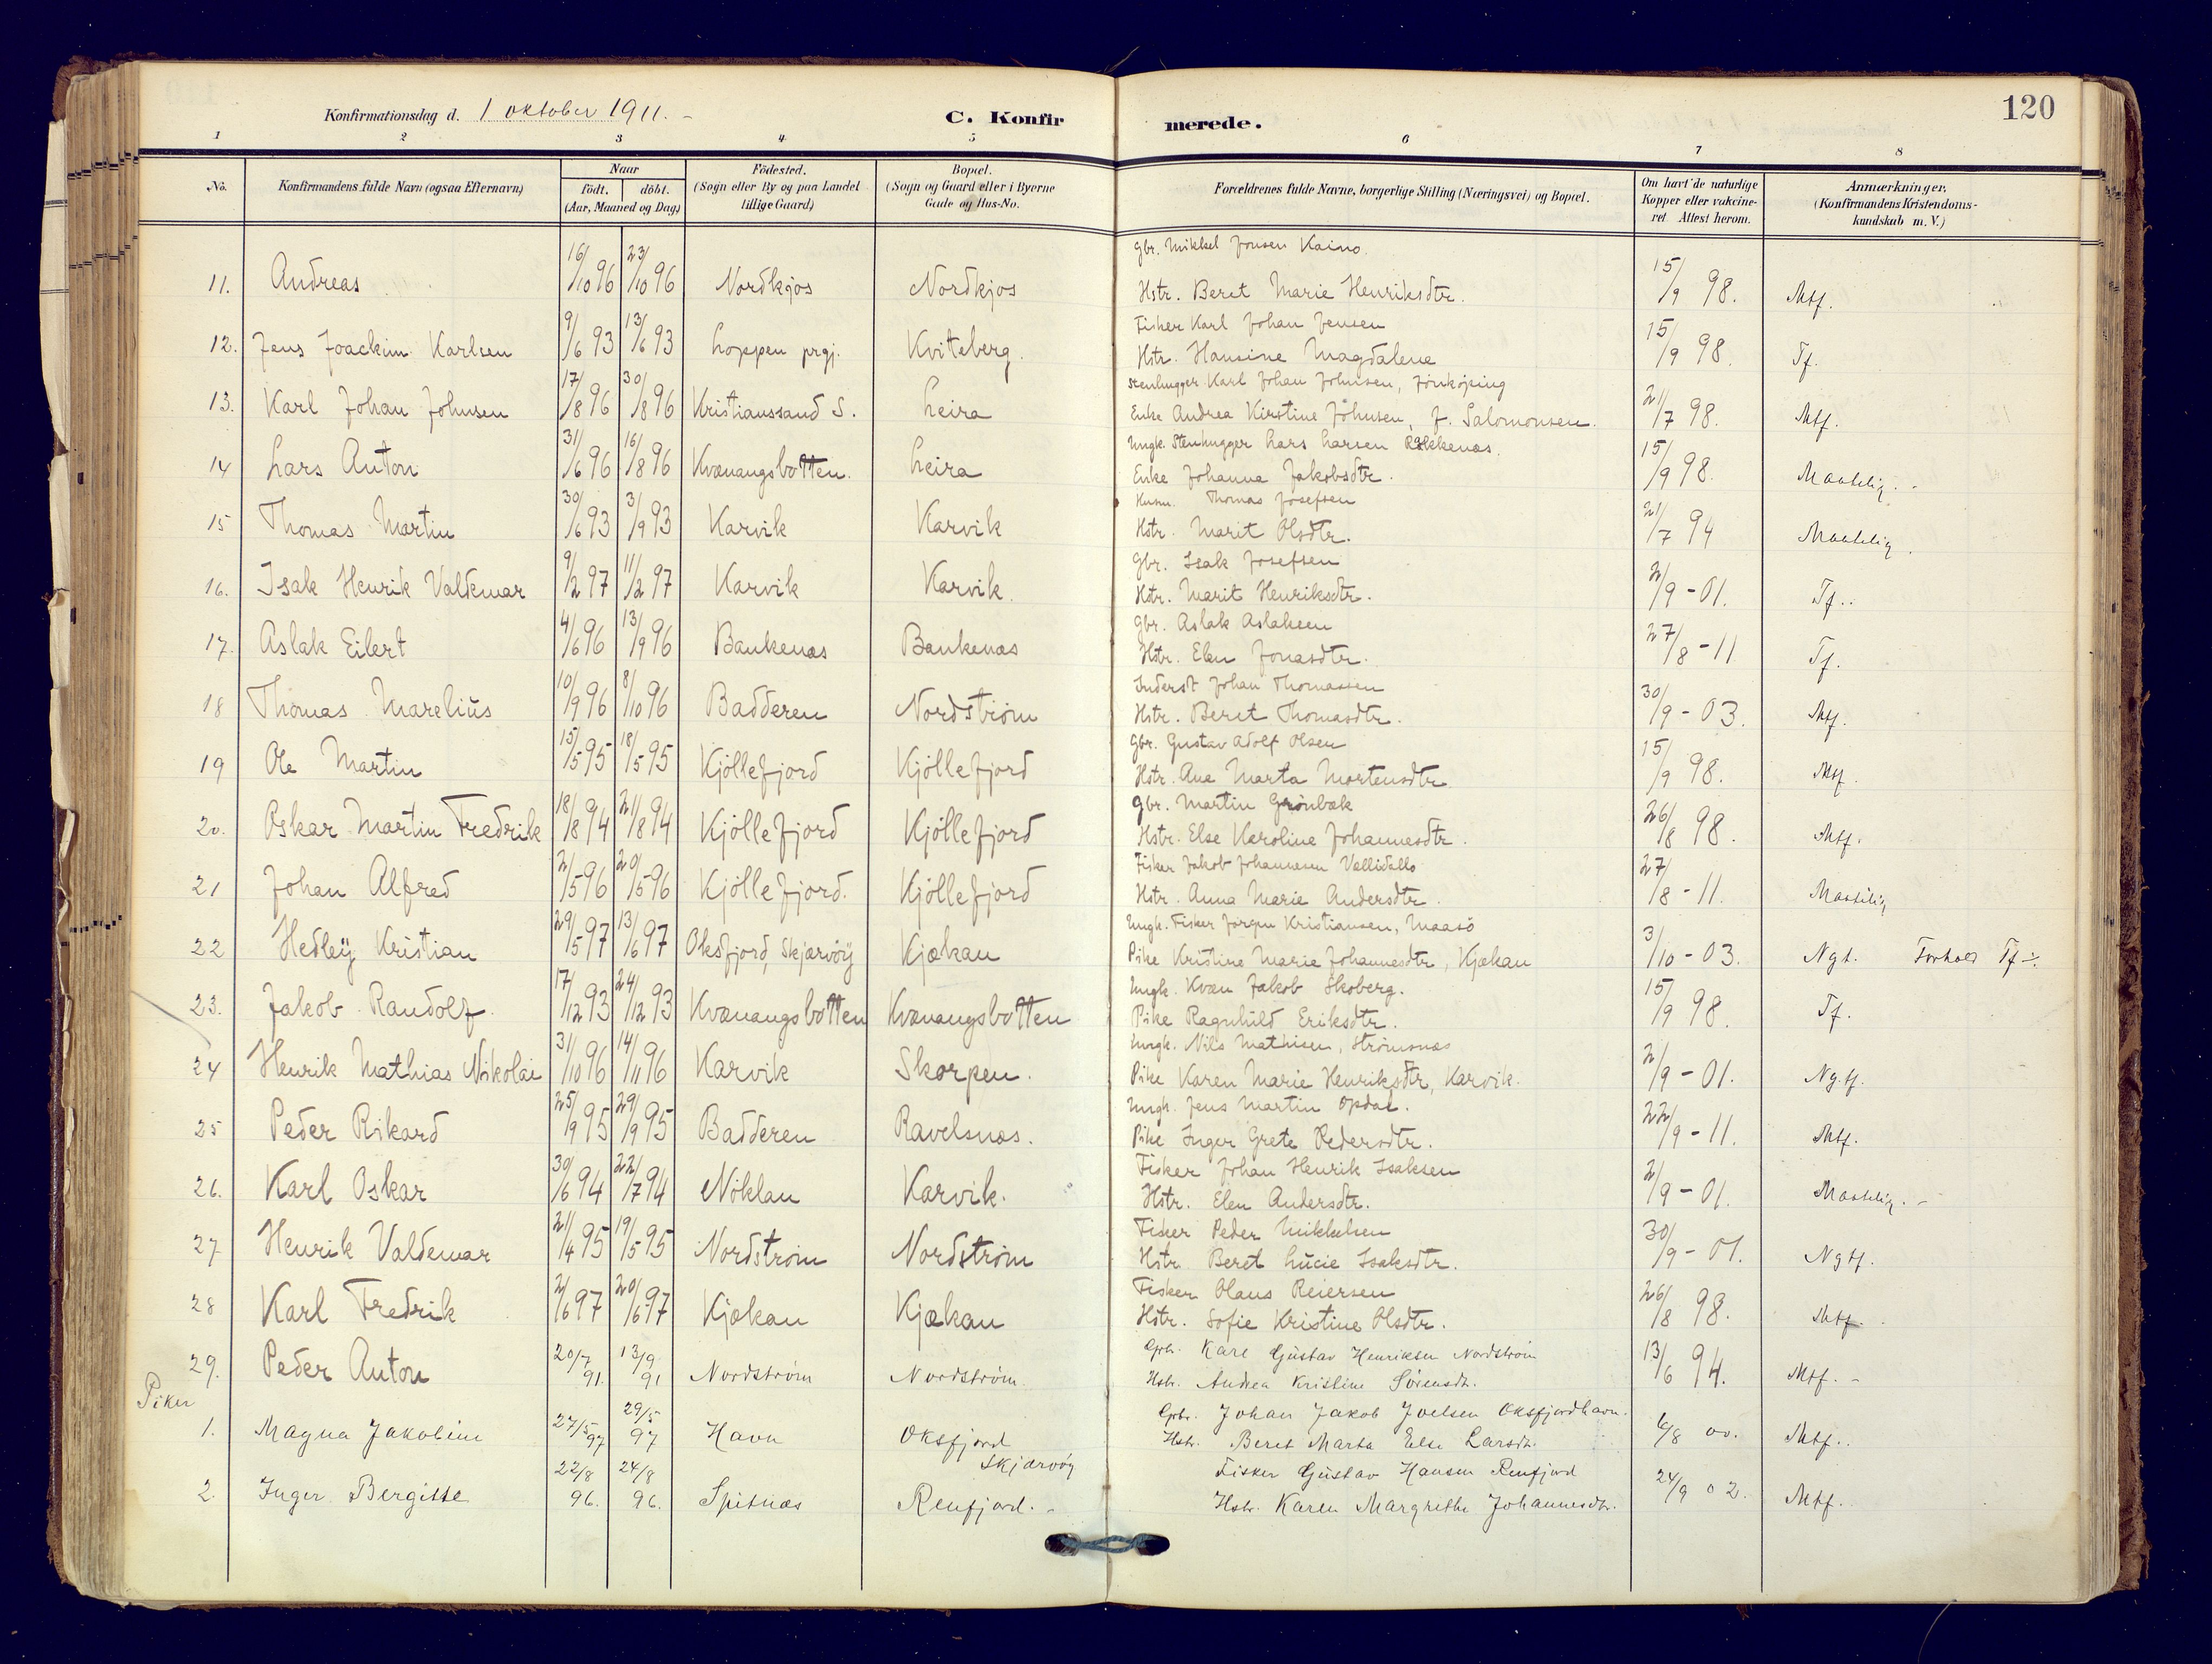 Konfirmationsdag d. 1 oktober 1911. -
C. Konfirmerede.
120
1 2 3 4 5 6 7 8
No.
Konfirmandens fulde Navn (ogsaa Efternavn)
Naar
födt. döbt.
(Aar, Maaned og Dag)
Födested.
(Sogn eller By og paa Landet
tillige Gaard)
Bopæl.
(Sogn og Gaard eller i Byerne
Gade og Hus-No.
Forældrenes fulde Navne, borgerlige Stilling (Næringsvei) og Bopæl.
Om havt de naturlige
Kopper eller vakcine-
ret Attest herom.
Anmærkninger.
(Konfirmandens Kristendoms-
kundskab m. V.)
Gbr. Mikkel Jonsen Kaino.
11. Andreas 16/10 96 23/10 96 Nordkjos Nordkjos Hstr. Beret Marie Henriksdtr. 15/9 98. Mtf.
Fisker Karl Johan Jensen
12. Jens Joackim Karlsen 9/6 93 13/6 93 Loppen prgj. Kviteberg. Hstr. Hansine Magdalene 15/9 98. Tf.
Stenhugger Karl Johan Johnsen, Jönköping
13. Karl Johan Johnsen 17/8 96 30/8 96 Kristianssand S. Leira Enke Andrea Kirstine Johnsen, f. Salomonsen. 21/7 98. Mtf.
Ungk. Stenhugger Lars Larsen
14 Lars Anton 31/6 96 16/8 96 Kvænangsbotten. Leira Enke Johanna Jakobsdtr. 15/9 98. Maatelig. -
Husm. Thomas Josefsen
15 Thomas Martin 30/6 93 3/9 93 Karvik Karvik Hstr. Marit Olsdtr. 21/7 94 Maatelig.
Gbr. Isak Josefsen
16. Isak Henrik Valdemar 9/2 97 11/2 97 Karvik Karvik. Hstr. Marit Henriksdtr. 2/9 - 01. Tf..
Gbr. Aslak Aslaksen
17. Aslak Eilert 4/6 96 13/9 96 Bankenæs Bankenæs Hstr. Elen Jonasdtr. 27/8 - 11 Tf.
Inderst Johan Thomassen
18 Thomas Marelius 10/9 96 8/10 96 Badderen Nordstrøm Hstr. Beret Thomasdtr. 30/9 - 03. Mtf.
Gbr. Gustav Adolf Olsen
19 Ole Martin 15/5 95 18/5 95 Kjöllefjord Kjöllefjord Hstr. Ane Marta Mortensdtr 15/9 98. Mtf.
Gbr. Martin Grönbæk
20. Oskar Martin Fredrik 18/8 94 21/8 94 Kjöllefjord Kjöllefjord Hstr. Else Karoline Johannesdtr. 26/8 98. Mtf.
Fisker Jakob Johannesen Vallidallo
21 Johan Alfred 2/5 96 20/5 96 Kjöllefjord. Kjöllefjord Hstr. Anna Marie Andersdtr. 27/8 - 11. Maatelig
Ungk. Fisker Jörgen Kristiansen, Maasö
22 Hedley Kristian 29/5 97 13/6 97 Oksfjord, Skjærvöy Kjækan Pike Kristine Marie Johannesdtr, Kjækan 3/10 - 03. Ngt. Forhold Tf
Ungk. Kvæn Jakob Skoberg.
23. Jakob Randolf. 17/12 93 24/12 93 Kvænangsbotten Kvænangsbotten Pike Ragnhild Eriksdtr. 15/9 98. Tf.
Ungk. Nils Mathisen, Strømsnæs
24 Henrik Mathias Nikolai 31/10 96 14/11 96 Karvik Skorpen. Pike Karen Marie Henriksdtr, Karvik. 2/9 - 01. Ng.tf.
Ungk. Jens Martin Opdal.
25 Peder Rikard 25/9 95 29/9 95 Badderen Ravelsnæs. Pike Inger Grete Pedersdtr. 22/9 - 11. Mtf.
Fisker Johan Henrik Isaksen
26. Karl Oskar 30/6 94 22/7 94 Nöklan Karvik. Hstr. Elen Andersdtr. 2/9 - 01. Maatelig. -
Fisker Peder Mikkelsen
27 Henrik Valdemar 21/4 95 19/5 95 Nordstrøm Nordstrøm Hstr. Beret Lucie Isaksdtr. 30/9 - 01. Ngtf.
Fisker Olaus Reiersen
28 Karl Fredrik 2/6 97 20/6 97 Kjækan Kjækan Hstr. Sofie Kristine Olsdtr. 26/8 98. Mtf.
Gbr. Karl Gustav Henriksen Nordstrøm
29. Peder Anton 20/7 91. 13/9 91 Nordstrøm Nordstrøm. Hstr. Andrea Kristine Sörensdt. 13/6 94. Mtf. -
Piker
Gbr. Johan Jakob Joelsen Oksfjordhavn.
1. Magna Jakobine 27/5 97 29/5 97 Havn Oksfjord Skjærvöy Hstr. Beret Marta Else Larsdt. 6/8 00. Mtf..
Fisker Gustav Hansen Renfjord
2. Inger Bergitte 22/8 96. 24/8 96. Spitnæs Renfjord. - Hstr. Karen Margrethe Johannesdtr. 24/9 02. Mtf.